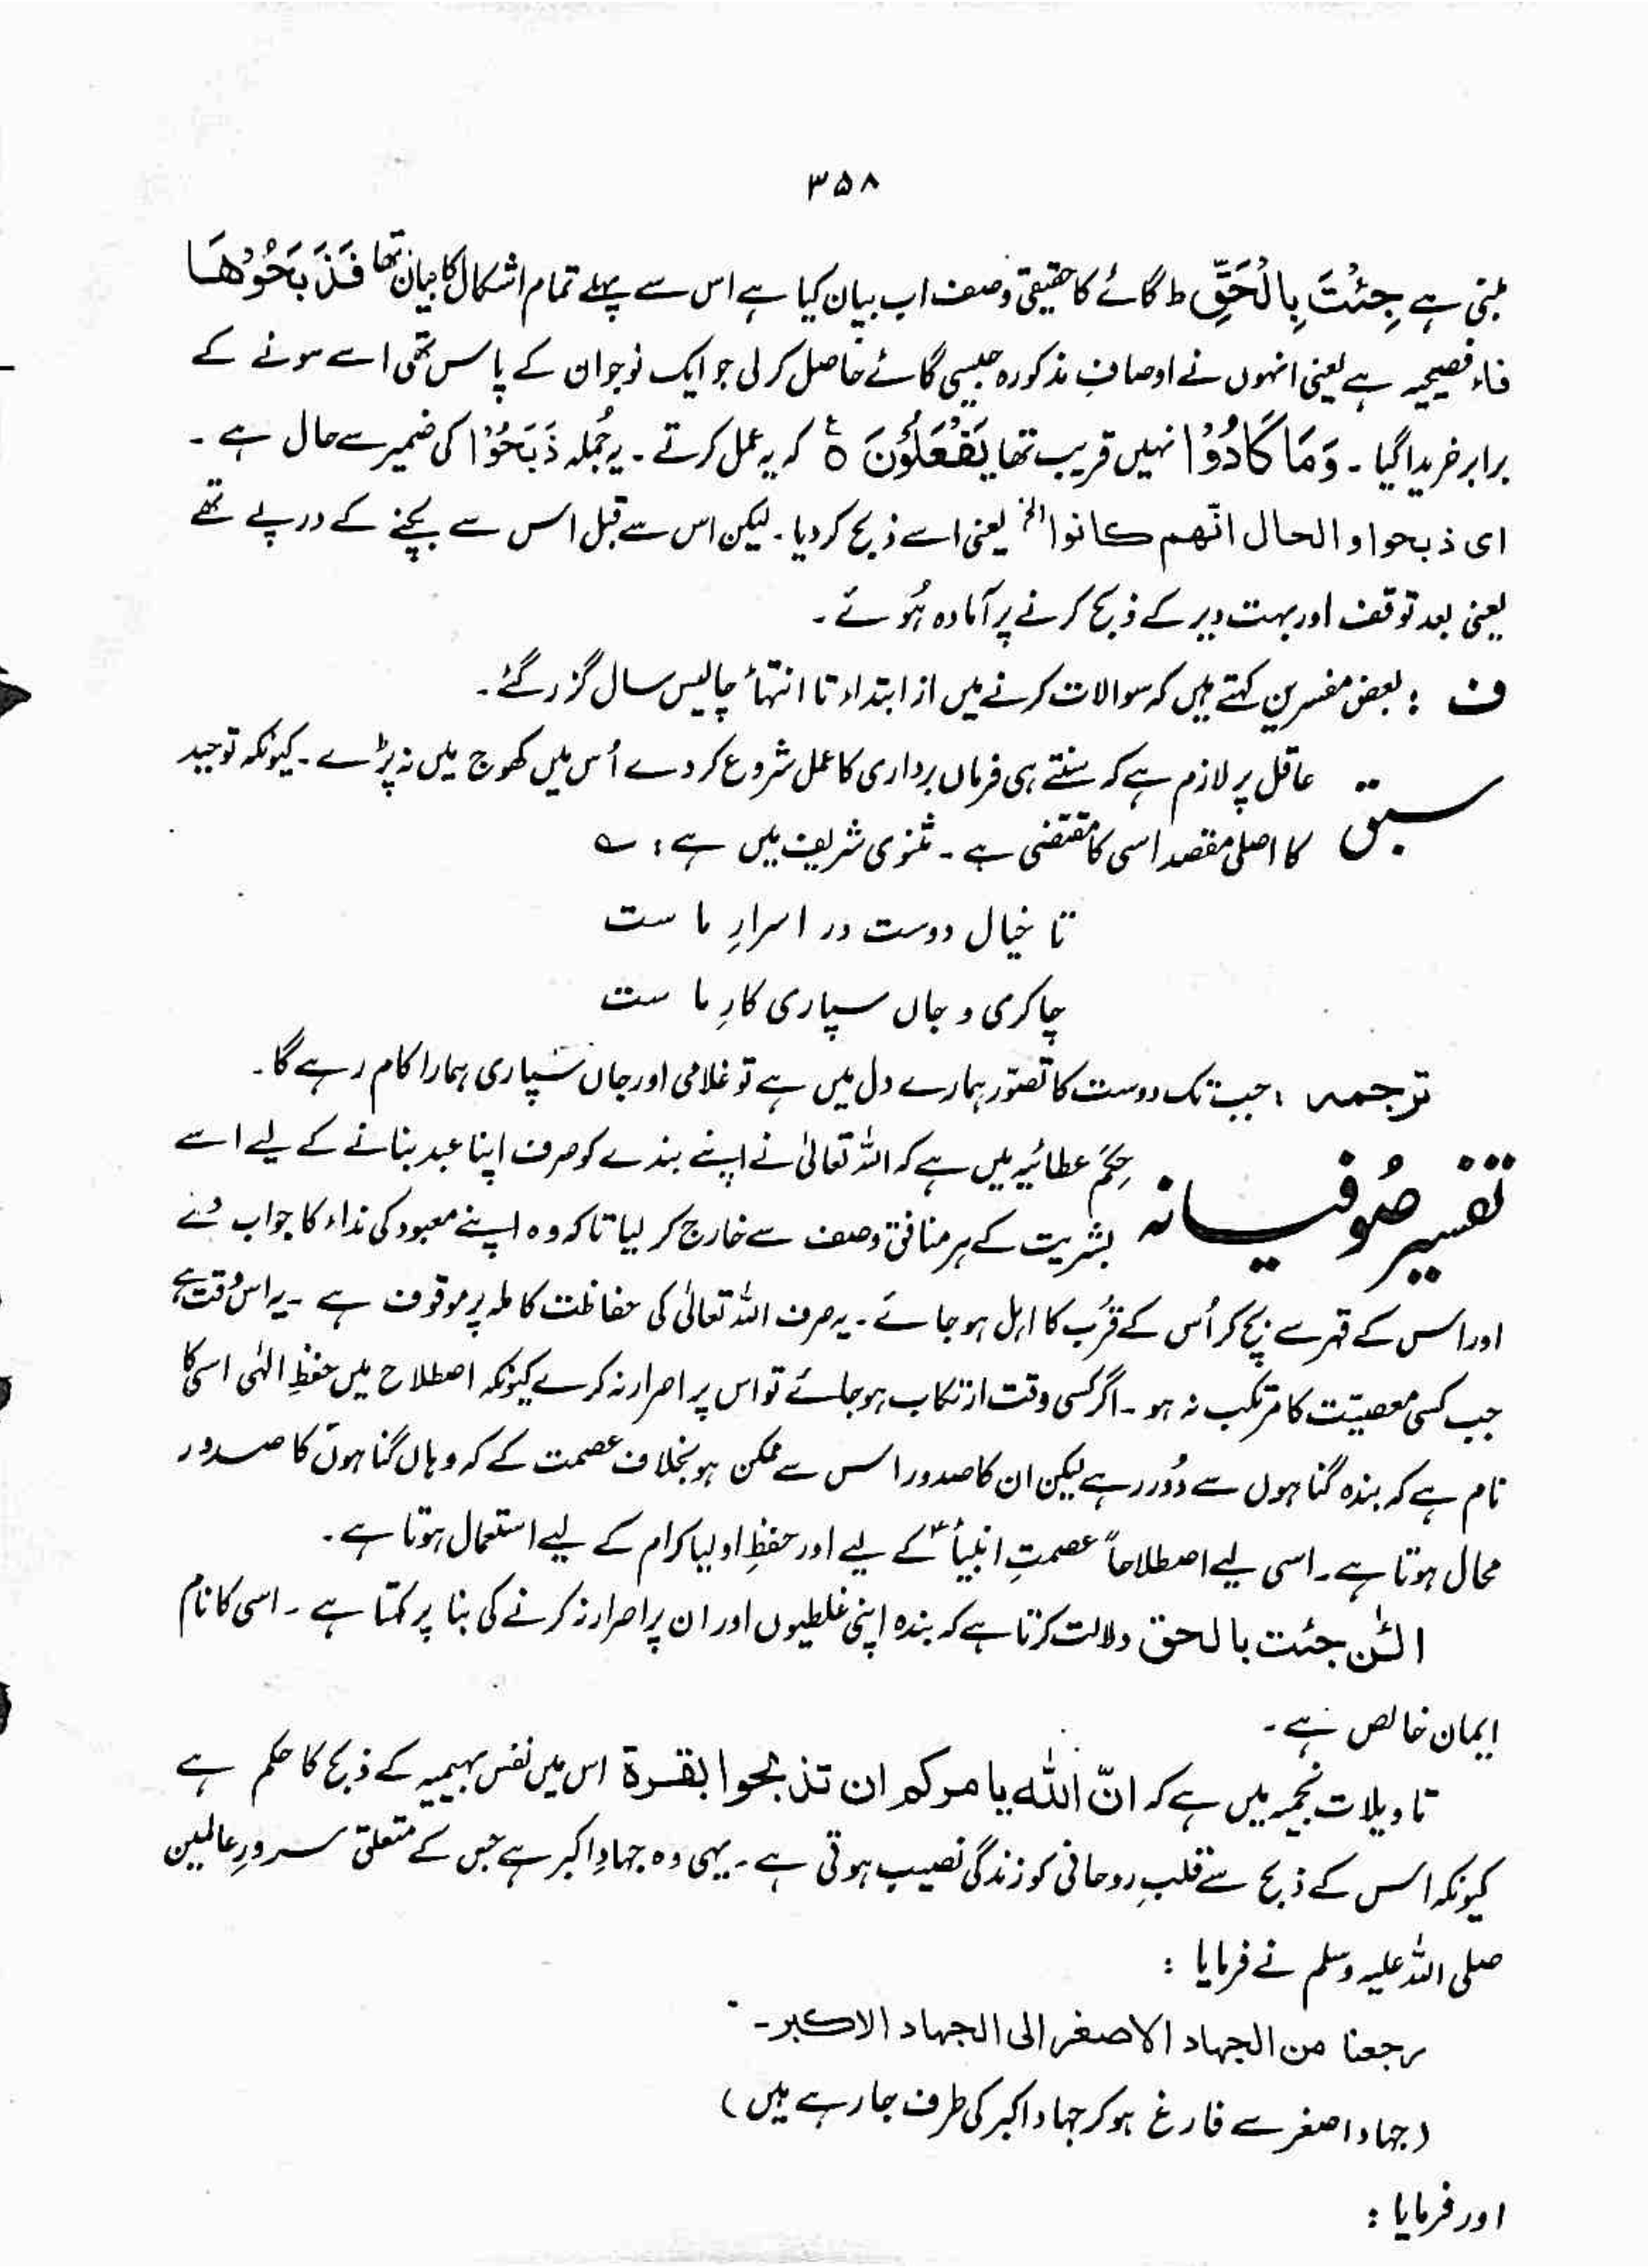 ۳۵۸
مبنی ہے جِئْتَ بِالْحَقِّ ط گائے کا حقیقی وصف اب بیان کیا ہے اس سے پہلے تمام اشکال کا بیان تھا فَذَبَحُوْهَا
فاء فصیحیہ ہے یعنی انہوں نے اوصافِ مذکورہ جیسی گائے حاصل کر لی جو ایک نوجوان کے پاس تھی اسے سونے کے
برابر خریدا گیا ۔ وَمَا كَادُوْا نہیں قریب تھا يَفْعَلُوْنَ ۃ کہ یہ عمل کرتے ۔ یہ جُملہ ذَبَحُوْا کی ضمیر سے حال ہے ۔
ای ذبحوا و الحال انّھم کانوا الخ یعنی اسے ذبح کر دیا ۔ لیکن اس سے قبل اس سے بچنے کے درپے تھے
یعنی بعد توقف اور بہت دیر کے ذبح کرنے پر آمادہ ہُوئے ۔
ف : بعض مفسرین کہتے ہیں کہ سوالات کرنے میں از ابتداء تا انتہاءً چالیس سال گزر گئے ۔
سبق عاقل پر لازم ہے کہ سنتے ہی فرماں برداری کا عمل شروع کر دے اُس میں کھوج میں نہ پڑے ۔ کیونکہ توحید
کا اصلی مقصد اسی کا مقتضی ہے ۔ مثنوی شریف میں ہے : ؎
تا خیال دوست در اسرارِ ما ست
چاکری و جاں سپاری کارِ ما ست
ترجمہ : جب تک دوست کا تصوّر ہمارے دل میں ہے تو غلامی اور جاں سپاری ہمارا کام رہے گا ۔
تفسیر صُوفیانہ حِکَم عطائیہ میں ہے کہ اللہ تعالیٰ نے اپنے بندے کو صرف اپنا عبد بنانے کے لیے اسے
بشریت کے ہر منافی وصف سے خارج کر لیا تاکہ وہ اپنے معبود کی نداء کا جواب دے
اور اس کے قہر سے بچ کر اُس کے قُرب کا اہل ہو جائے ۔ یہ صرف اللہ تعالیٰ کی حفاظت کاملہ پر موقوف ہے ۔ یہ اس وقت ہے
جب کسی معصیّت کا مرتکب نہ ہو ۔ اگر کسی وقت ارتکاب ہو جائے تو اس پر اصرار نہ کرے کیونکہ اصطلاح میں حفظِ الٰہی اسی کا
نام ہے کہ بندہ گناہوں سے دُور رہے لیکن ان کا صدور اس سے ممکن ہو بخلاف عصمت کے کہ وہاں گناہوں کا صدور
محال ہوتا ہے ۔ اسی لیے اصطلاحاً عصمتِ انبیاءؑ کے لیے اور حفظِ اولیا کرام کے لیے استعمال ہوتا ہے ۔
الئٰن جئت بالحق دلالت کرتا ہے کہ بندہ اپنی غلطیوں اور ان پر اصرار نہ کرنے کی بنا پر کہتا ہے ۔ اسی کا نام
ایمان خالص ہے ۔
تاویلات نجمیہ میں ہے کہ انّ اللّٰہ یامرکم ان تذبحوا بقرۃ اس میں نفس بہیمیہ کے ذبح کا حکم ہے
کیونکہ اس کے ذبح سے قلبِ روحانی کو زندگی نصیب ہوتی ہے ۔ یہی وہ جہادِ اکبر ہے جس کے متعلق سرورِ عالمین
صلی اللہ علیہ وسلم نے فرمایا :
رجعنا من الجہاد الاصغر الی الجہاد الاکبر ۔
(جہاد اصغر سے فارغ ہو کر جہاد اکبر کی طرف جا رہے ہیں)
اور فرمایا :